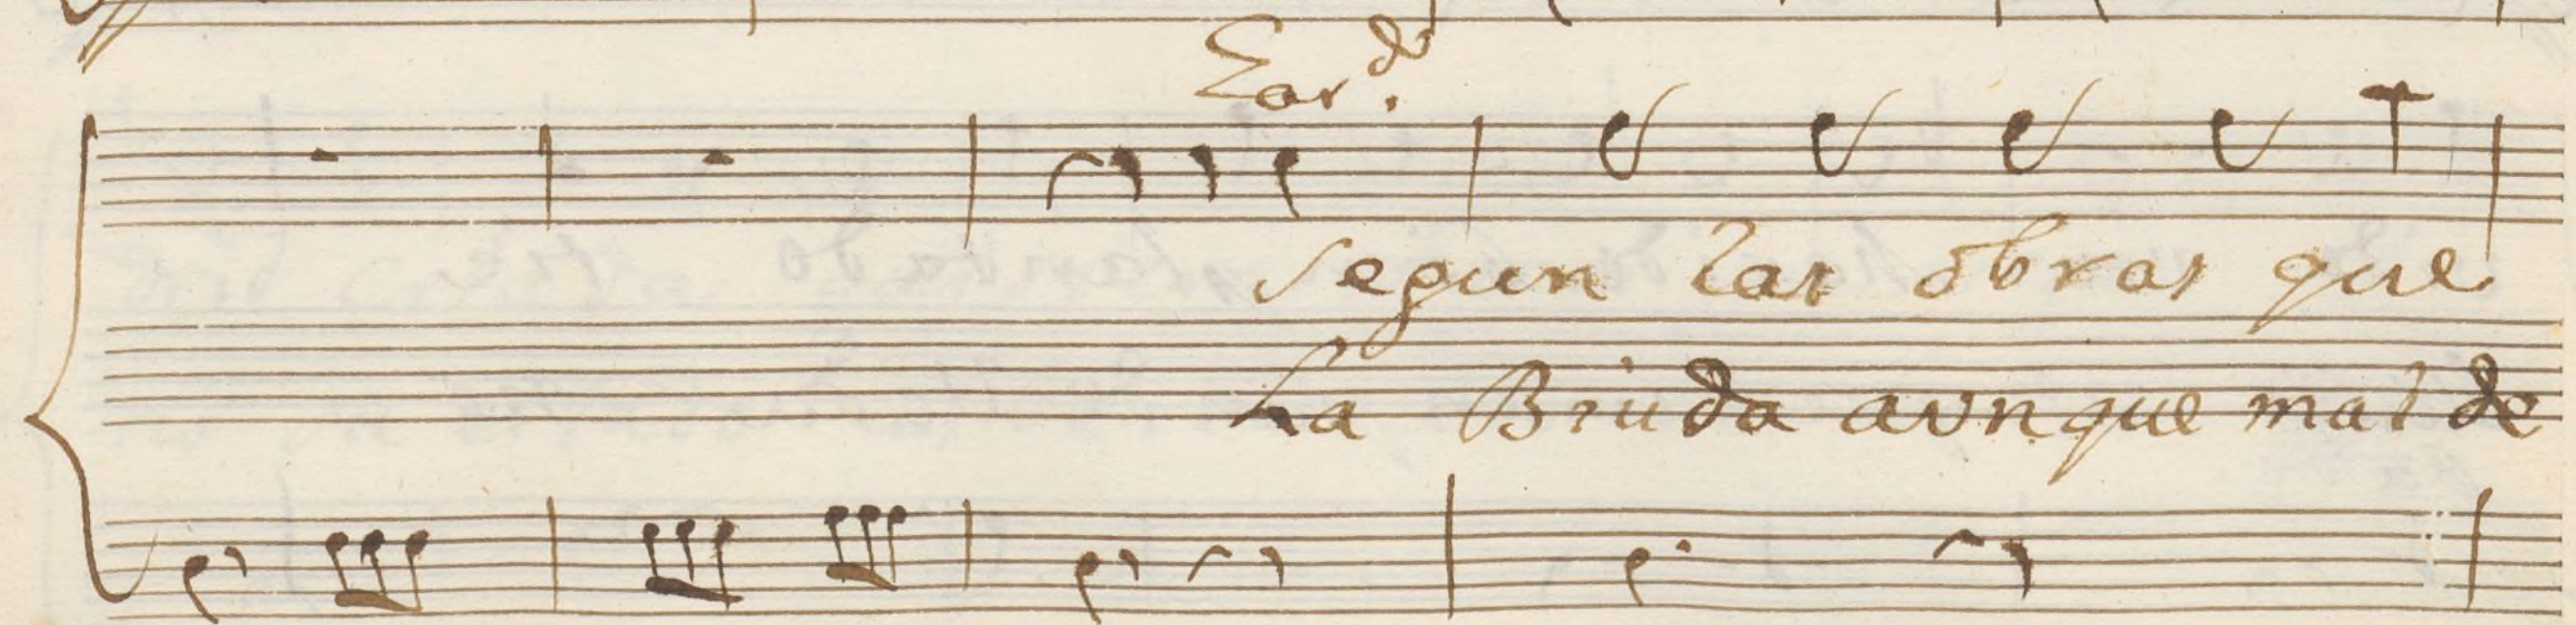 Ear.do
Segun las obras que
La Biuda avnque mal de